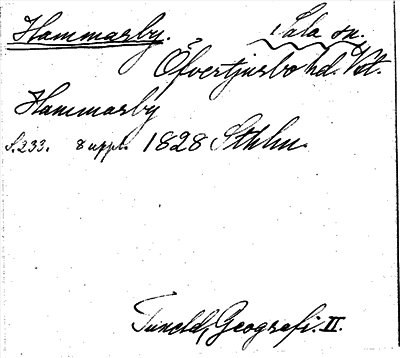 Hammarby. Sala sn.
Öfvertjurbo hd. Vst.
Hammarby
S. 233. 8 uppl. 1828 Sthlm.
Tuneld, Geografi. II.